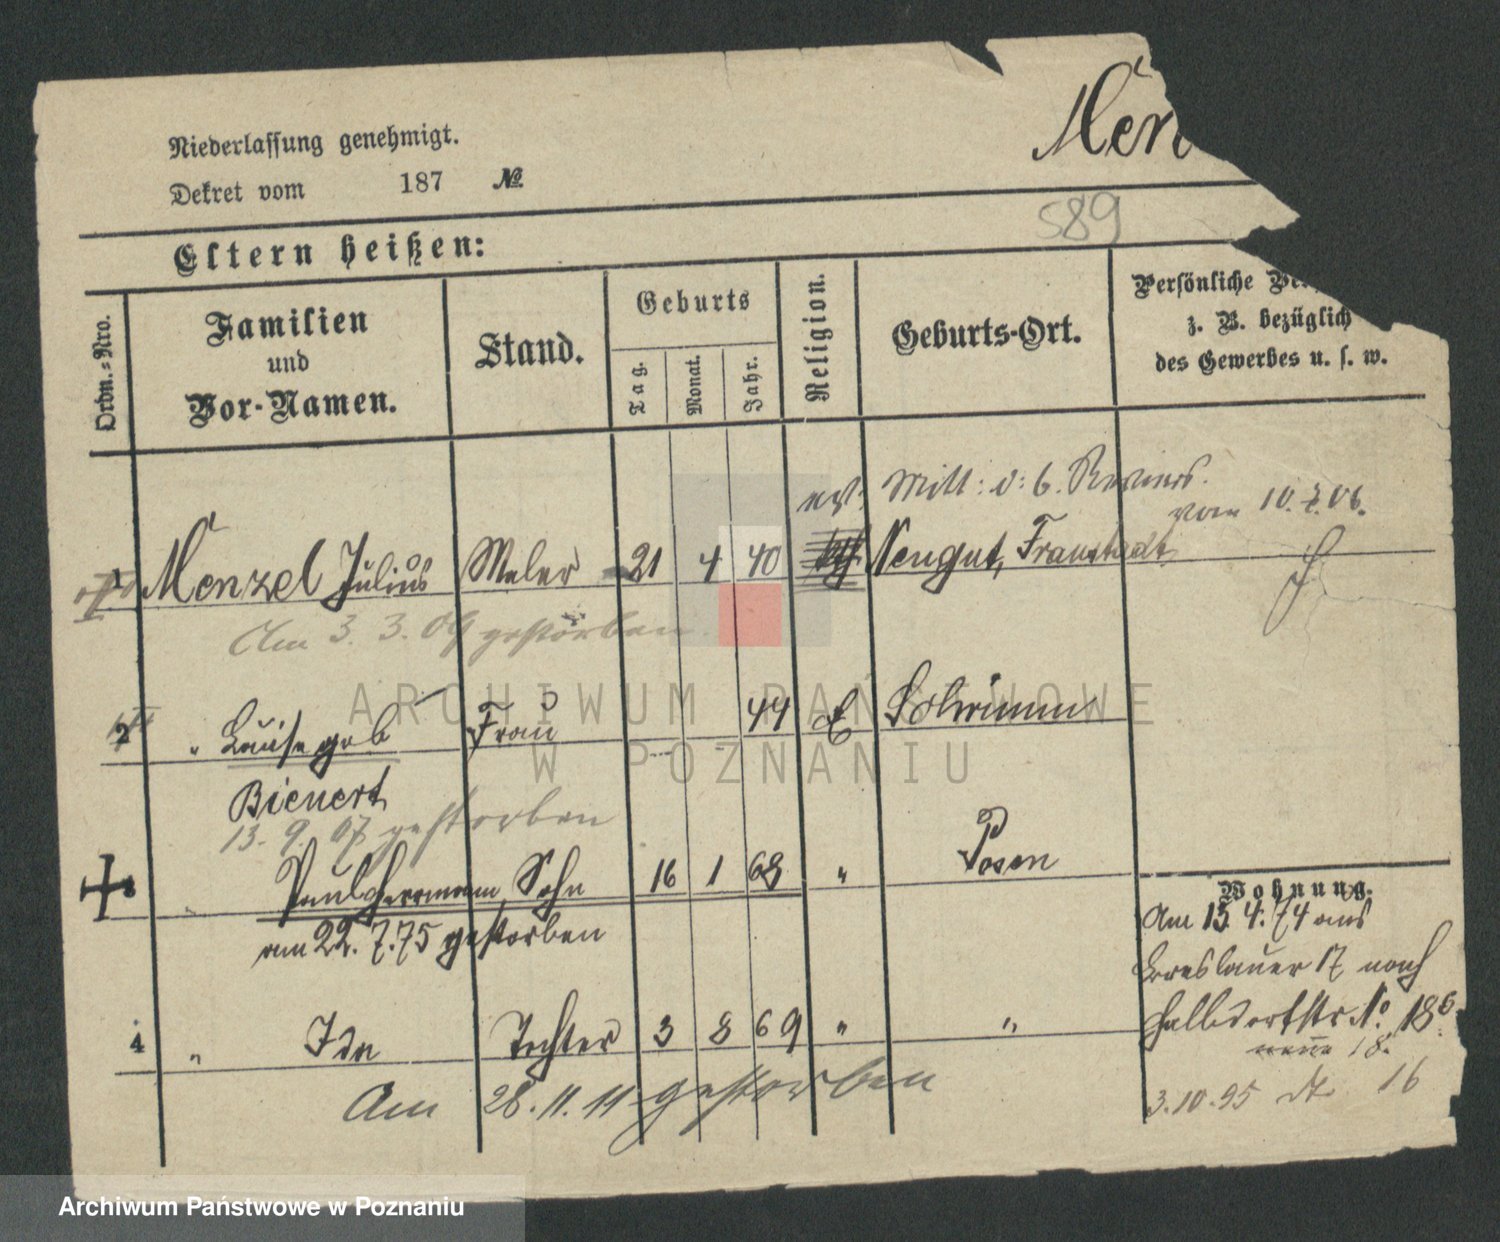 Niederlassung genehmigt.
Dekret vom 187 №
Men
589
Eltern heißen:
Ordn.-Nro.
Familien und Vor-Namen.
Stand.
Geburts
Tag.
Monat.
Jahr.
Religion.
Geburts-Ort.
Persönliche
z. B. bezüglich
des Gewerbes u. s. w.
ev. Mitt: d: 6. Reviers.
vom 10. 7. 06.
1 Menzel Julius Maler 21 4 40 Neugut, Fraustadt
Am 3. 3. 09 gestorben.
2 " Luise geb Frau 44 E Schrimm
Bienert
13. 9. 07 gestorben
3 " Paul Herrmann, Sohn 16 1 68 " Posen
am 22. 7. 75 gestorben
Wohnung.
Am 13 4. 74 aus
Breslauer 17 nach
Halbdorfstr No. 18
neue 18.
4 " Ida Tochter 3 8 69 " "
Am 28. 11. 11 gestorben
3. 10. 95 dto 16
ARCHIWUM PAŃSTWOWE
W POZNANIU
Archiwum Państwowe w Poznaniu